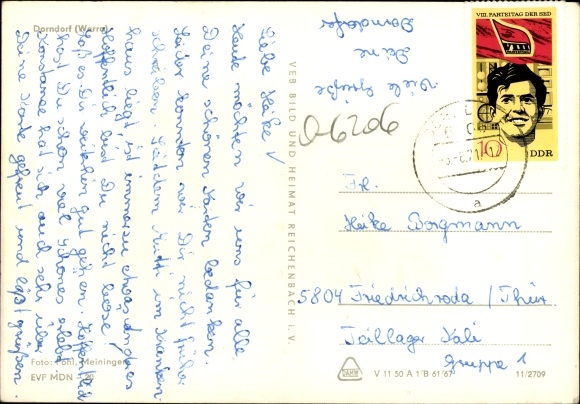 Dorndorf (Werra)
Liebe Heike!
Heute möchten wir uns für alle
Deine schönen Karten bedanken.
Leider konnten wir Dir nicht früher
schreiben. Seitdem Mutti im Kranken-
haus liegt, ist immer etwas anderes.
Hoffentlich bist Du nicht böse!
daß es Dir weiterhin gut gehen. Hoffentlich
hast Du schon viel Schönes erlebt.
Konstanze hat sich auch sehr über
Deine Karte gefreut und läßt grüßen.
Viele Grüße
Deine
Dorndorfer
Foto: Pohl, Meiningen
EVP MDN -,20
VEB BILD UND HEIMAT REICHENBACH I. V.
0-6206
VIII. PARTEITAG DER SED
10
DDR
a
Fr.
Heike Borgmann
5804 Friedrichroda / Thür.
Zeltlager Kali
Gruppe 1
V 11 50 A 1 B 61/67
11/2709